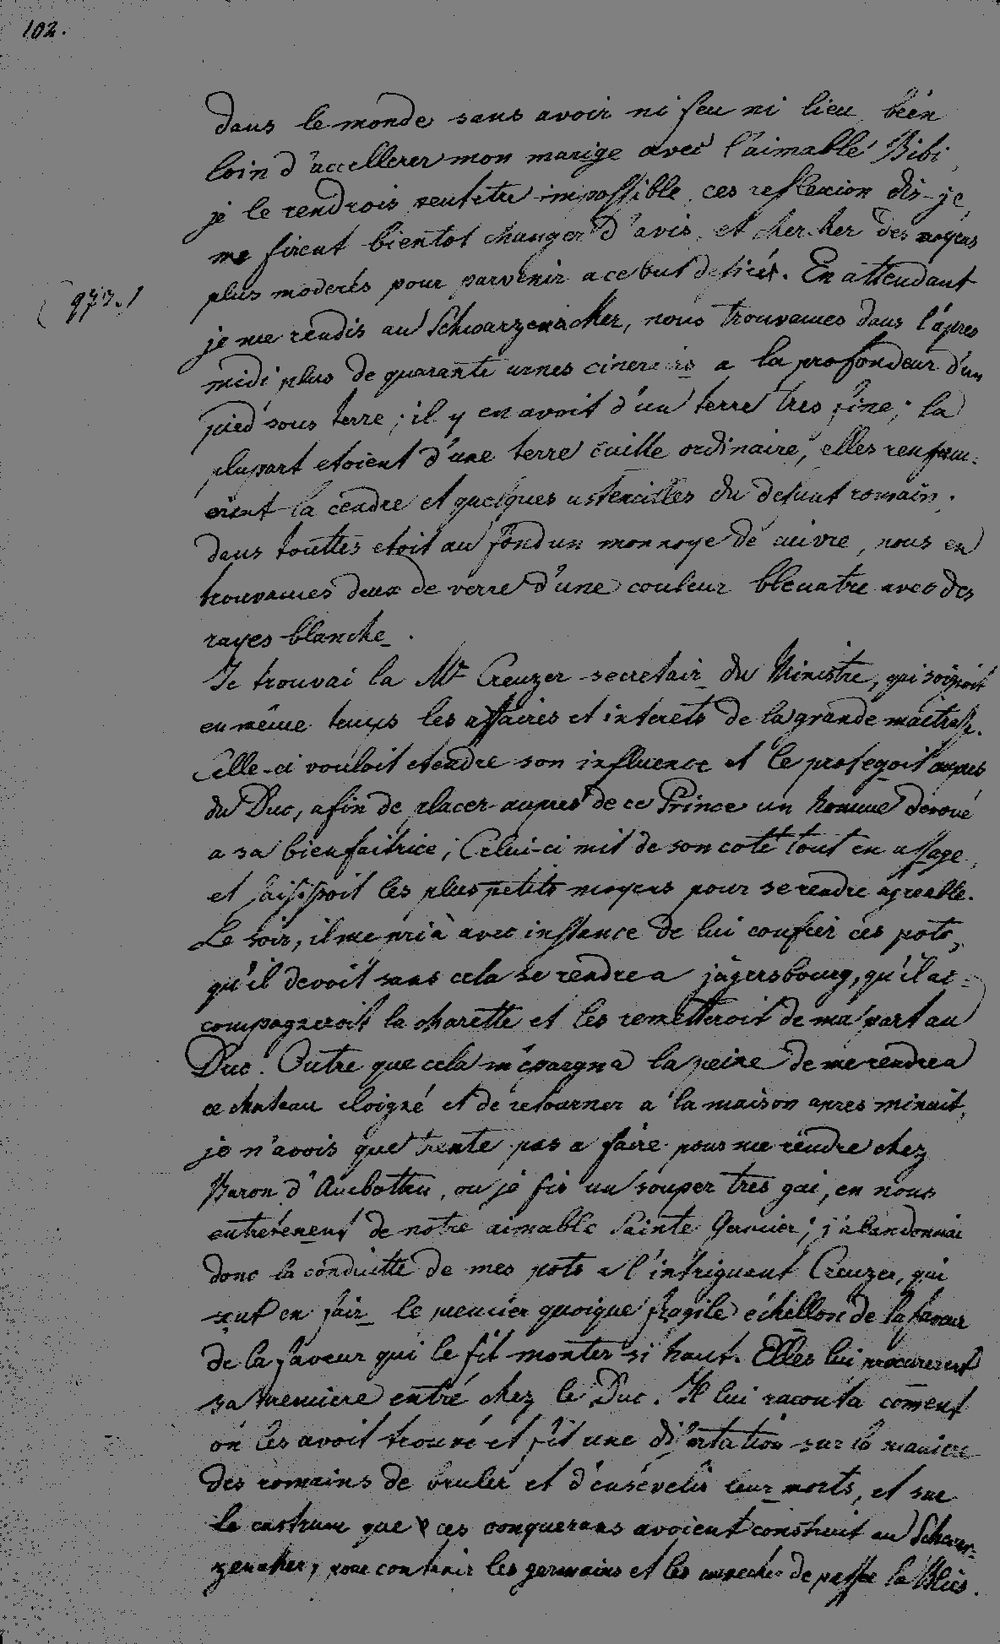 102.
dans le monde sans avoir ni feu ni lieu bien
loin d'accellerer mon marige avec l'aimable Bibi
je le rendrois peutetre impossible, ces reflexion dis-je
me firent bientot changer d'avis, et chercher des moyens
plus moderés pour parvenir a ce but desiré. En attendant
je me rendis au Schwarzenacker, nous trouvames dans l'apres
midi plus de quarante urnes cinerairs a la profondeur d'un
pied sous terre; il y en avoit d'un terre tres fine; la
plupart etoient d'une terre cuitte ordinaire, elles renferm:
erent la cendre et quelques ustencilles du defunt romain.
dans touttes etoit au fond un monnoye de cuivre, nous en
trouvames deux de verre d'une couleur bleuatre avec des
rayes blanche.
Je trouvai la Mr Creuzer secretair du Ministre, qui soignoit
en même temps les affaires et interets de la grande maitresse.
Celle-ci vouloit etendre son influence et le protegoit aupres
du Duc, afin de placer aupres de ce Prince un homme devoué
a sa bienfaitrice; Celui-ci mit de son coté tout en usage,
et saisissoit les plus petits moyens pour se rendre agreable.
Le soir, il me pria avec instance de lui confier ces pots,
qu'il devoit sans cela se rendre a jägersbourg, qu'il ac=
compagneroit la charette et les remetteroit de ma part au
Duc. Outre que cela m'epargna la peine de me rendre a
ce chateau eloigné et de retourner a la maison apres minuit,
je n'avois que trente pas a faire pour me rendre chez
Baron d'Aubotten, ou je fis un souper tres gai, en nous
entretenent de notre aimable Sainte Garnier; j'abandonnai
donc la conduitte de mes pots a l'intriguent Creuzer, qui
sut en fair le premier quoique fragile échellon de la faveur
de la faveur qui le fit monter si haut. Elles lui procurerent
sa premiere entré chez le Duc. Il lui raconta coment
on les avoit trouvé et fit une disertation sur la maniere
des romains de bruler et d'ensévelir leur morts, et sur
le castrum que ces conquerans avoient construit au Schwar-
zenacker, pour contenir les germains et les empecher de passer la Blies.
(977.)